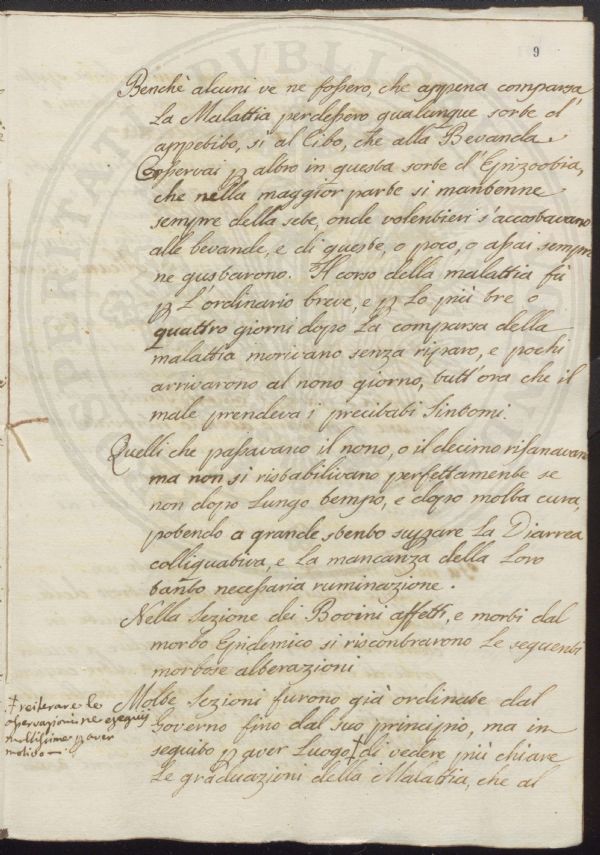 9
Benchè alcuni ve ne fossero, che appena comparsa
La Malattia perdessero qualunque sorte d'
appetito, sì al Cibo, che alla Bevanda.
Osservai p altro in questa sorte d'Epizootia,
che nella maggior parte si mantenne
sempre della sete, onde volentieri s'accostavano
alle bevande, e di queste, o poco, o assai sempre
ne gustarono. Il corso della malattia fù
p L'ordinario breve, e p Lo più tre o
quattro giorni dopo La comparsa della
malattia morivano senza riparo, e pochi
arrivarono al nono giorno, tutt'ora che il
male prendeva i precitati Sintomi.
Quelli che passavano il nono, o il decimo risanavano
ma non si ristabilivano perfettamente se
non dopo Lungo tempo, e dopo molta cura,
potendo a grande stento supare La Diarrea
colliquativa, e La mancanza della Loro
tanto necessaria ruminazione.
Nella Sezione dei Bovini affetti, e morti dal
morbo Epidemico si riscontrarono Le seguenti
morbose alterazioni
Molte Sezioni furono già ordinate dal
Governo fino dal suo principio, ma in
seguito p aver Luogo † di vedere più chiare
Le graduazioni della Malattia, che al
† reiterare le
osservazioni ne eseguij
moltissime p aver
motivo